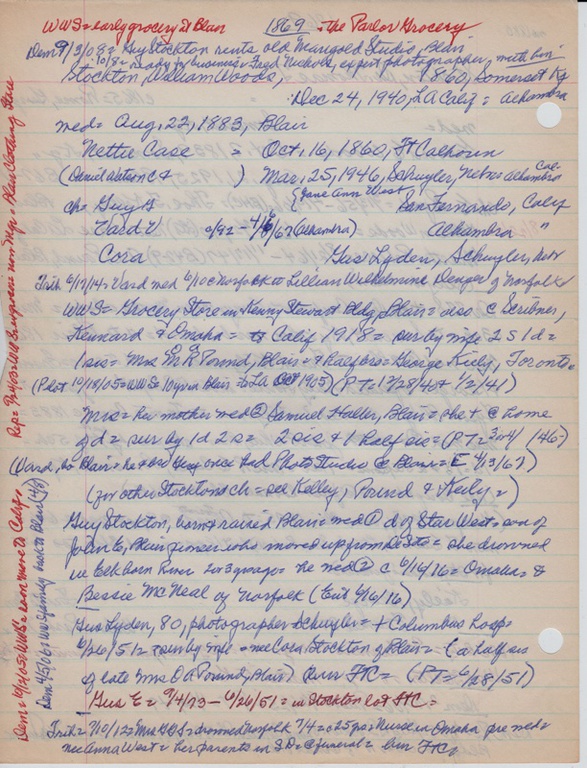 WWS = early grocery at Blair 1869 = the Parlor Grocery
Dem 9/3/08 = Guy Stockton rents old Marigold Studio, Blair
10/8 = ready for business = Fred Nichols, expert photographer, with him
Stockton, William Woods, 1860, Somerset Ky
Dec 24, 1940, LA Calif = Alhambra
med = Aug, 22, 1883, Blair
Nettie Case = Oct, 16, 1860, Ft Calhoun
(Daniel Watson C & ) Mar, 25, 1946, Schuyler, Nebr = Alhambra Cal
ch = Guy G (Jane Ann West, San Fernando, Calif
Vard V 9/92 - 4/ /67 (Alhambra) Alhambra "
Cora Gus Lyden, Schuyler, Nebr
Trib 6/17/14 = Vard med 6/10 c Norfolk to Lillian Wilhelmine Denger of Norfolk
WWS = Grocery Store in Kenny Stewart Bldg, Blair = also c Scribner,
Kennard & Omaha = to Calif 1918 = sur by wife 2 s 1 d =
1 sis = Mrs M R Pound, Blair = & half bro = George Kiely, Toronto =
(Pilot 10/18/05 = WWS = 10 yr in Blair = to La Oct 1905) (PT = 12/28/40 + 1/2/41)
Mrs = her mother med ② Samuel Haller, Blair = she + @ home
of d = sur by 1 d 2 s = 2 sis & 1 half sis = (PT = 3/ /46 =)
(Vard, to Blair = he & bro Guy once had Photo Studio @ Blair = E 4/13/67)
(for other Stocktons ch = see Kelley, Pound & Kiely =)
Guy Stockton, born & raised Blair = med ① d of Star West = son of
John E, Blair pioneer who moved up from = she drowned
in Elk Horn River 2 or 3 yrs ago = he med ② c 6/14/16 = Omaha = to
Bessie McNeal of Norfolk (Ent 6/6/16)
Gus Lyden, 80, photographer @ Schuyler = + Columbus hosp =
6/26/51 = sur by wife = nee Cora Stockton of Blair = (a half sis
of late Mrs O A Pound, Blair) bur FtC = (PT = 6/28/51)
Gus E = 9/4/73 - 6/26/51 = in Stockton lot FtC =
Trib = 7/10/12 = Mrs GGS = drowned Norfolk 7/4 = c 25 yrs = Nurse in Omaha pre med =
nee Anna West = her parents in S.D = c funeral = bur FtC =
Rep = WWS = Blair Clothing Store
Dem = 9/21/05 = WWS = soon move to Calif =
Dem 4/5/06 = WWS family back to Blair (4/6)